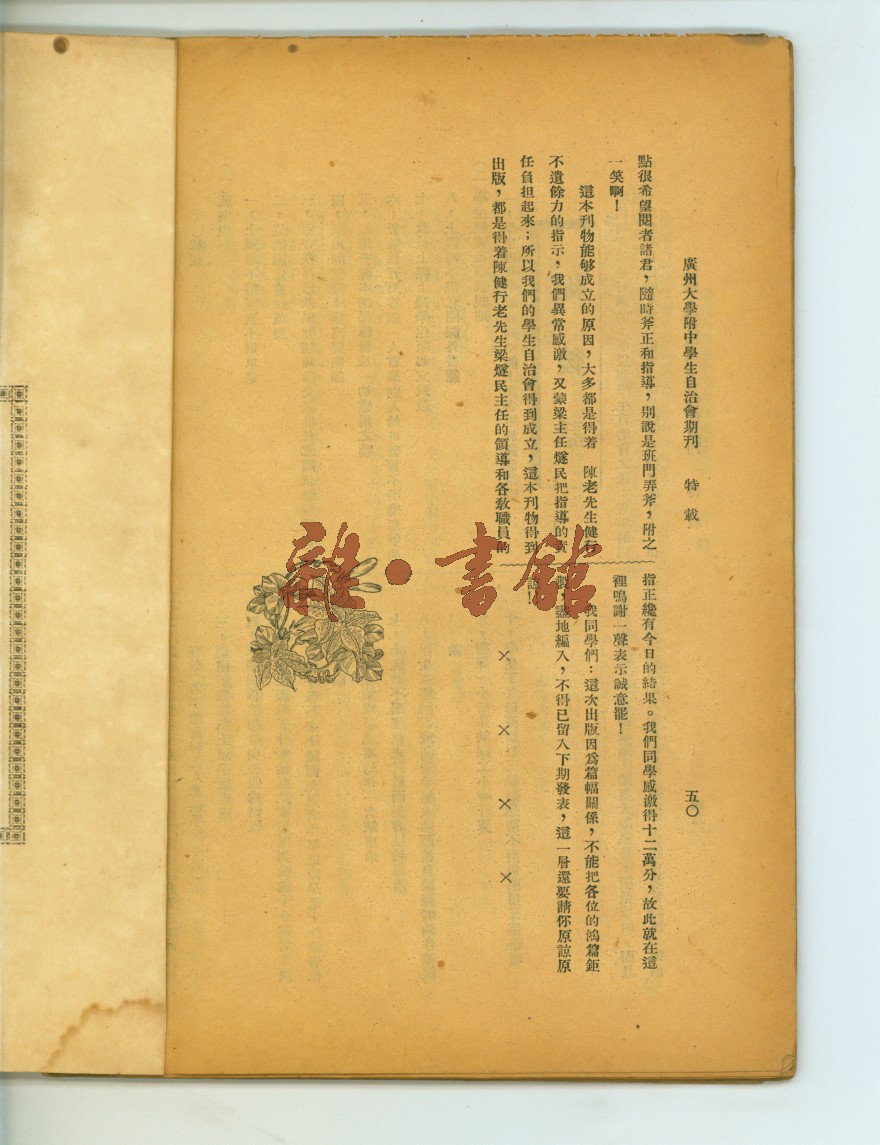 廣州大學附中學生自治會期刊　特載　五〇
點很希望閱者諸君，隨時斧正和指導，別說是班門弄斧，附之
一笑啊！
這本刊物能够成立的原因，大多都是得着　陳老先生健行
不遺餘力的指示，我們異常感激，又蒙梁主任燧民把指導的責
任負担起來；所以我們的學生自治會得到成立，這本刊物得到
出版，都是得着陳健行老先生梁燧民主任的領導和各教職員的
指正纔有今日的結果。我們同學感激得十二萬分，故此就在這
裡鳴謝一聲表示誠意罷！
我同學們：這次出版因爲篇幅關係，不能把各位的鴻篇鉅
盡地編入，不得已留入下期發表，這一層還要請你原諒原
！
×　×　×　×
雜·書館